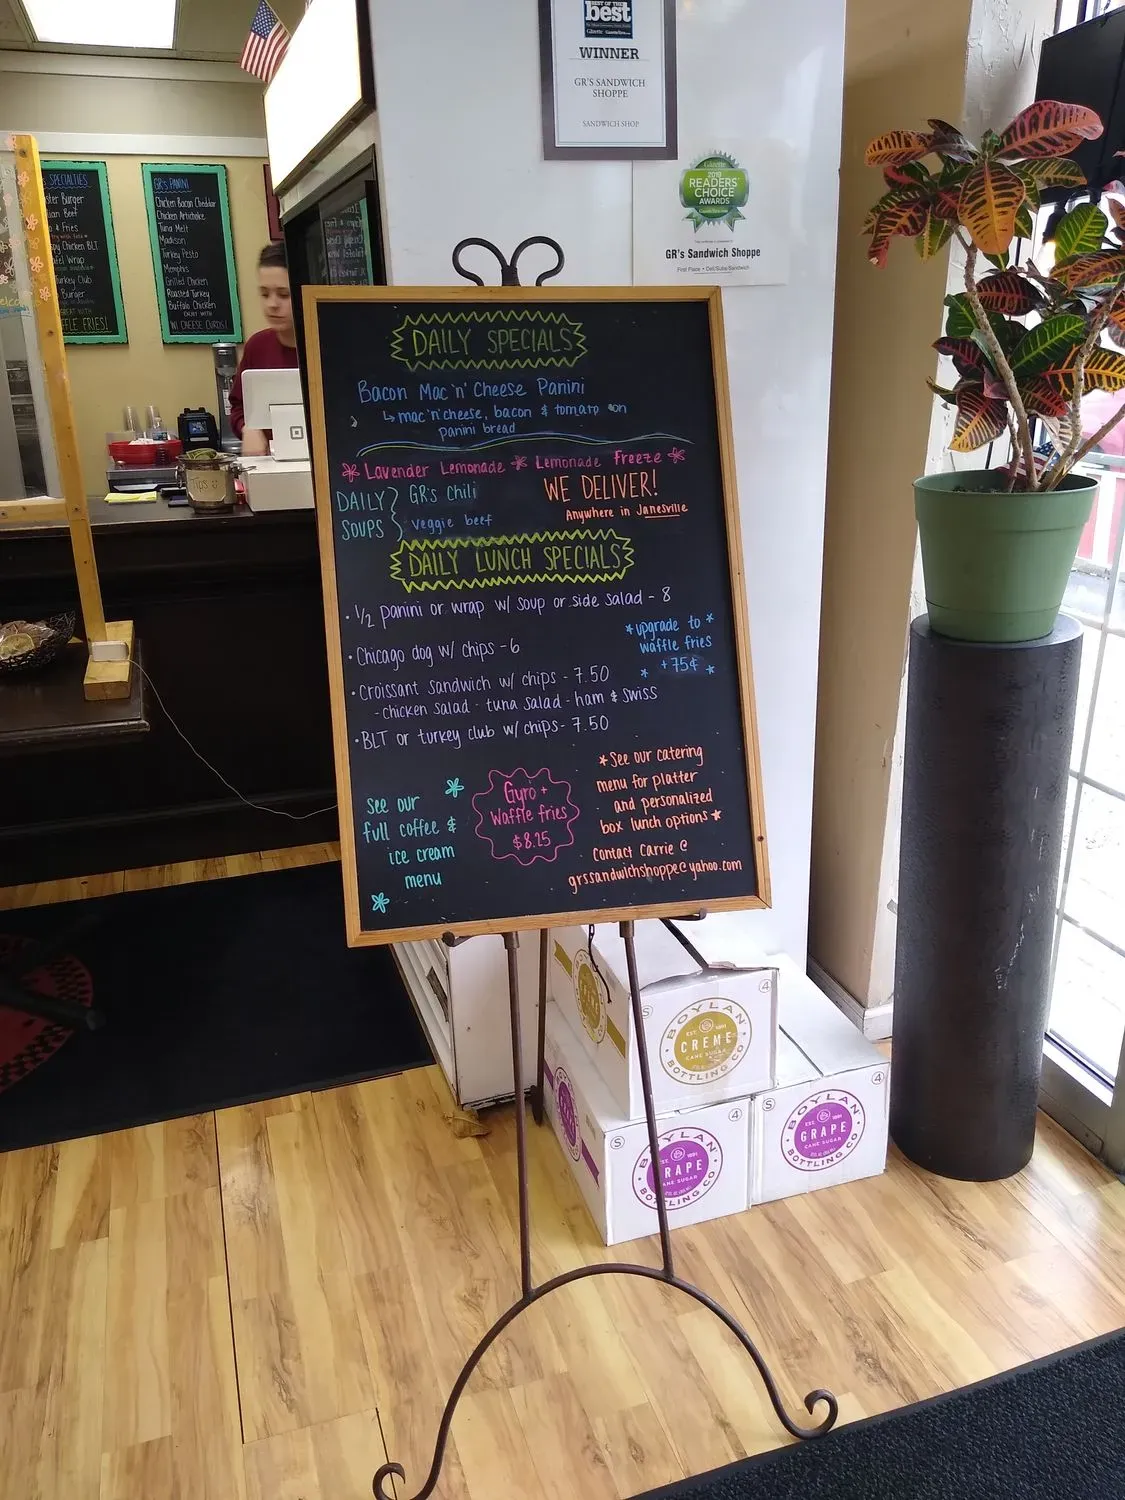 BEST OF THE
best
WINNER
GR'S SANDWICH
SHOPPE
SANDWICH SHOP
Gazette
2019
READERS'
CHOICE
AWARDS
GR's Sandwich Shoppe
First Place • Deli/Subs/Sandwich
SPECIALTIES
Burger
Beef
& Fries
Chicken BLT
Wrap
Turkey Club
Burger
FRIES!
GR'S PANINI
Chicken Bacon Cheddar
Chicken Artichoke
Tuna Melt
Madison
Turkey Pesto
Memphis
Grilled Chicken
Roasted Turkey
Buffalo Chicken
W/ CHEESE CURDS!
Tips
DAILY SPECIALS
Bacon Mac 'n' Cheese Panini
↳ mac 'n' cheese, bacon & tomato on
panini bread
Lavender Lemonade Lemonade Freeze
DAILY
SOUPS
GR's Chili
veggie beef
WE DELIVER!
Anywhere in Janesville
DAILY LUNCH SPECIALS
• 1/2 panini or wrap w/ soup or side salad - 8
• Chicago dog w/ chips - 6
*upgrade to*
waffle fries
* +75¢ *
• Croissant Sandwich w/ chips - 7.50
- chicken salad - tuna salad - ham & swiss
• BLT or turkey club w/ chips - 7.50
See our
full coffee &
ice cream
menu
Gyro +
Waffle fries
$8.25
*See our catering
menu for platter
and personalized
box lunch options*
Contact Carrie @
grssandwichshoppe@yahoo.com
BOYLAN
EST. 1891
CREME
CANE SUGAR
BOTTLING CO.
S
4
BOYLAN
RAPE
ANE SUGAR
BOTTLING CO.
S
4
BOYLAN
EST. 1891
GRAPE
CANE SUGAR
BOTTLING CO.
S
4